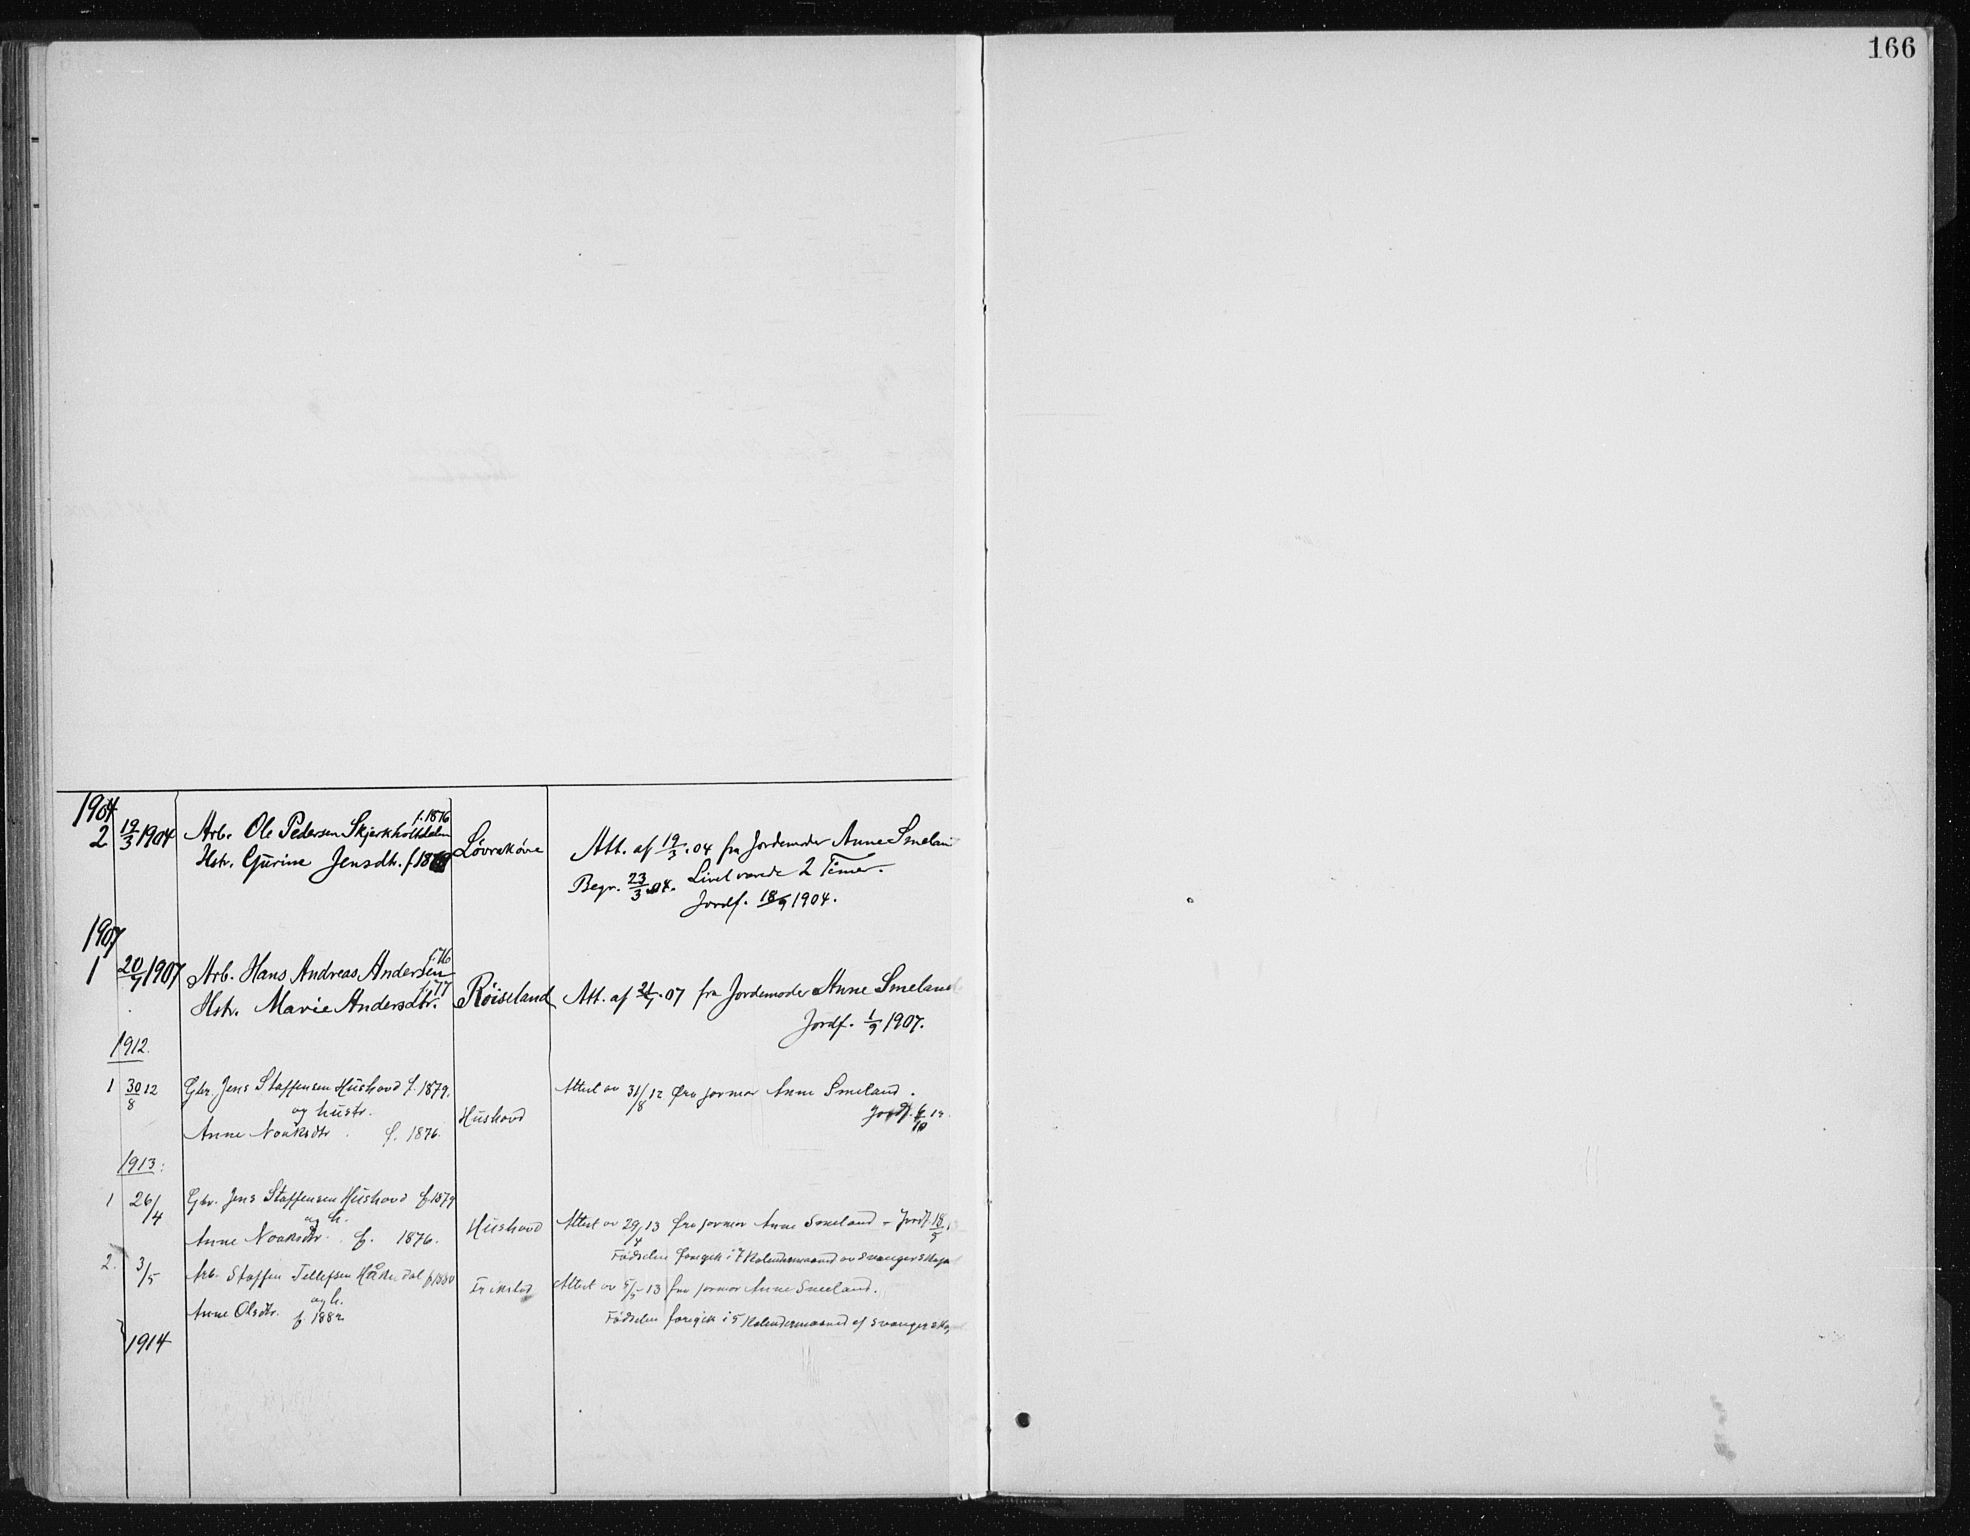 166
1904
2 19/3 1904 Arb. Ole Pedersen Skjerkholtdalen f. 1876
Hstr. Gurine Jensdtr. f 18
Løvrekøve
Att. af 19/3. 04 fra Jordemoder Anne Smelan
Begr. 23/3 04. Livet varede 2 Timer.
Jordf. 18/9 1904.
1907
1 20/7 1907 Arb. Hans Andreas Andersen f. 76
Hstr. Marie Andersdtr. f. 77
Röiseland
Att. af 21/7. 07 fra Jordemoder Anne Smeland
Jordf. 1/9 1907.
1912.
1 30/8 12 Gbr. Jens Staffensen Hushovd f. 1879.
og hustr.
Anne Noaksdtr f. 1876.
Hushovd
Attest av 31/8 12 fra jormor Anne Smeland.
Jordf. 6/10 12.
1913:
1 26/4 Gbr. Jens Staffensen Hushovd f. 1879
og h.
Anne Noaksdtr. f. 1876.
Hushovd
Attest av 29/4 13 fra jormor Anne Smeland - Jordf. 18/5
Fødselen foregik i 7 Kalendermaaned av Svangerskape
2. 3/5 Arb. Staffen Tellefsen dal f. 1880
og h.
Anne Olsdtr. f. 1882
Attest av 5/5 - 13 fra jormor Anne Smeland.
Fødselen foregik i 5 Kalendermaaned af svangerska
1914